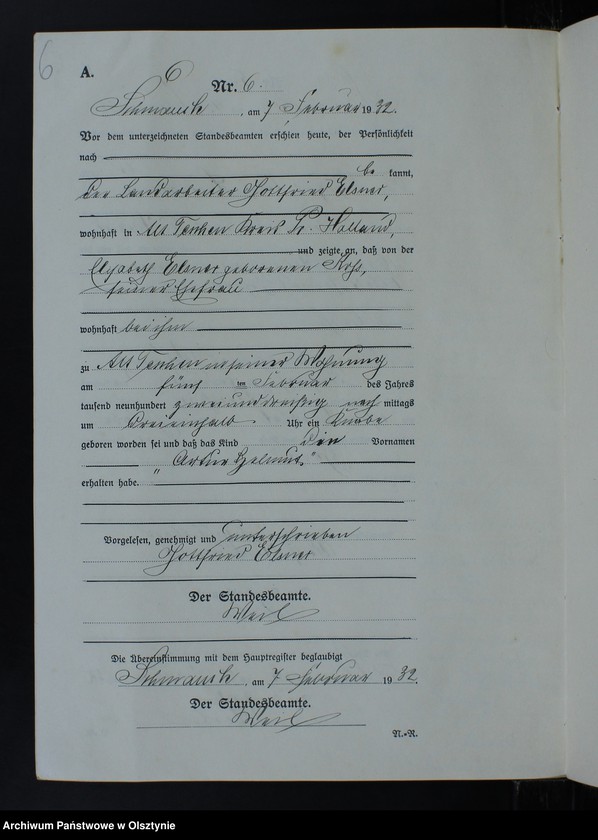 6
A.
6
Nr. 6.
Schmauch, am 7 Februar 1932.
Vor dem unterzeichneten Standesbeamten erschien heute, der Persönlichkeit
nach
be kannt,
der Landarbeiter Gottfried Elsner,
wohnhaft in Alt Teschen Kreis Pr. Holland,
und zeigte an, daß von der
Elisabeth Elsner geborenen
seiner Ehefrau
wohnhaft bei ihm
zu Alt Teschen in seiner Wohnung
am fünf ten Februar des Jahres
tausend neunhundert zweiunddreißig nach mittags
um dreieinhalb Uhr ein Knabe
geboren worden sei und daß das Kind die Vornamen
„Artur Helmut"
erhalten habe.
Vorgelesen, genehmigt und unterschrieben
Gottfried Elsner
Der Standesbeamte.
Weiß
Die Übereinstimmung mit dem Hauptregister beglaubigt
Schmauch, am 7 Februar 1932.
Der Standesbeamte.
Weiß
N.-R.
Archiwum Państwowe w Olsztynie